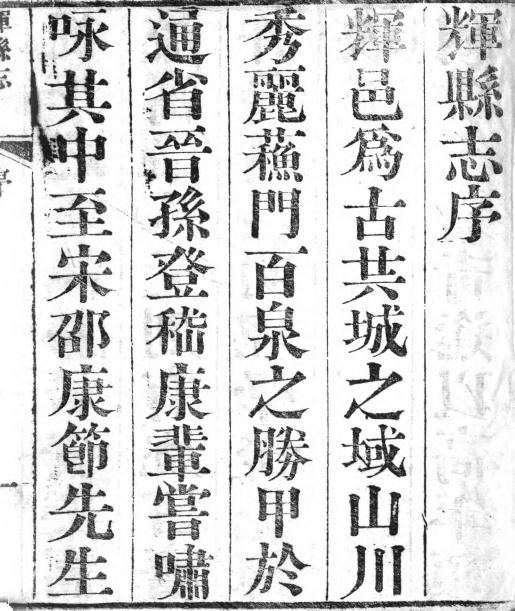 輝縣志序
輝邑爲古共城之域山川
秀麗蘓門百泉之勝甲於
通省晉孫登嵇康輩嘗嘯
咏其中至宋邵康節先生
輝縣志
序
一